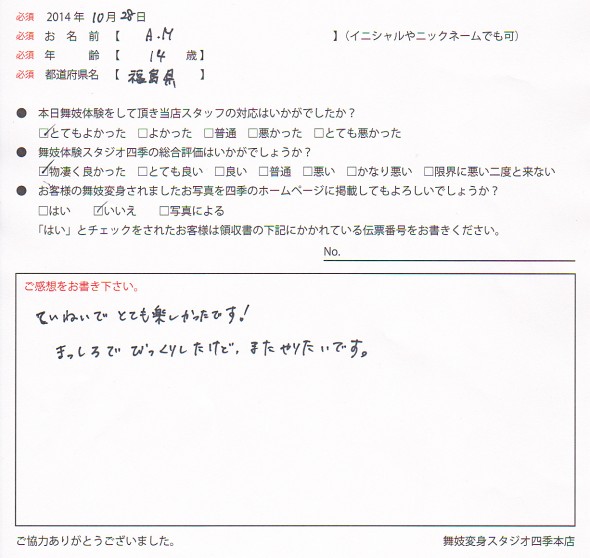 必須 2014年 10月 28日
必須 お名前【 A.M 】(イニシャルやニックネームでも可)
必須 年齢【 14 歳】
必須 都道府県名【 福島県 】
● 本日舞妓体験をして頂き当店スタッフの対応はいかがでしたか?
☑とてもよかった □よかった □普通 □悪かった □とても悪かった
● 舞妓体験スタジオ四季の総合評価はいかがでしょうか?
☑物凄く良かった □とても良い □良い □普通 □悪い □かなり悪い □限界に悪い二度と来ない
● お客様の舞妓変身されましたお写真を四季のホームページに掲載してもよろしいでしょうか?
□はい ☑いいえ □写真による
「はい」とチェックをされたお客様は領収書の下記にかかれている伝票番号をお書きください。
No.
ご感想をお書き下さい。
ていねいで とても楽しかったです!
まっしろで びっくりしたけど、またやりたいです。
ご協力ありがとうございました。 舞妓変身スタジオ四季本店